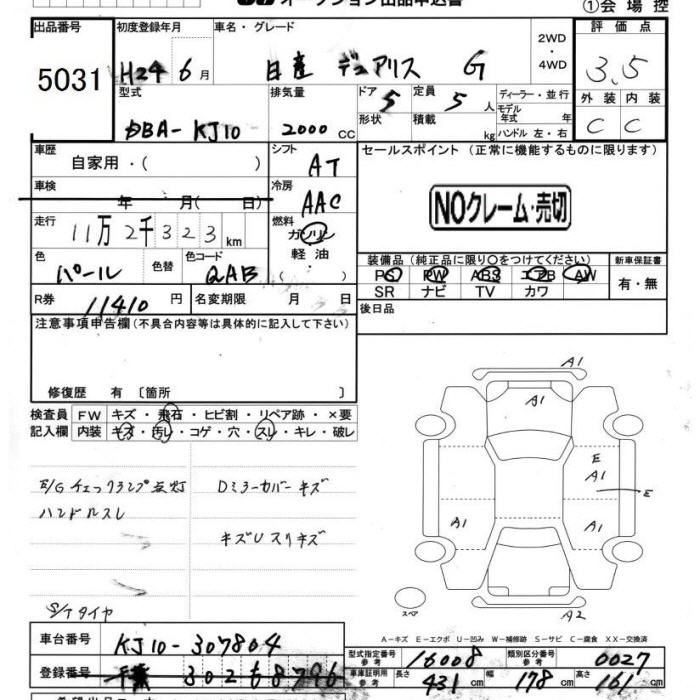 オークション出品申込書
①会場控
出品番号 初度登録年月 車名・グレード 評価点
5031 H24 6月 日産 デュアリス G 2WD・4WD 3.5
型式 排気量 ドア 5 定員 5人 ディーラー・並行 外装 内装
DBA-KJ10 2000cc 形状 積載 kg モデル年式 年 ハンドル 左・右 C C
車歴 自家用・( ) シフト AT セールスポイント (正常に機能するものに限ります)
車検 年 月( 日) 冷房 AAC NOクレーム・売切
走行 11万2千323km 燃料 ガソリン 軽油 ( )
装備品 (純正品に限り○をつけてください) 新車保証書
色 パール 色替 色コード QAB PS PW ABS エアB AW 有・無
SR ナビ TV カワ
R券 11410円 名変期限 月 日 後日品
注意事項申告欄 (不具合内容等は具体的に記入して下さい)
修復歴 有 〔箇所 〕
検査員 FW キズ・飛石・ヒビ割・リペア跡・×要
記入欄 内装 キズ・汚レ・コゲ・穴・スレ・キレ・破レ
E/Gチェックランプ点灯 Dミラーカバーキズ
ハンドルスレ
キズUスリキズ
S/Tタイヤ
A1
A1
E
A1
E
A1
A1
スペア
A2
A-キズ E-エクボ U-凹み W-補修跡 S-サビ C-腐食 XX-交換済
車台番号 KJ10-307804
型式指定番号 参考 16008 類別区分番号 参考 0027
登録番号 千葉 302
車庫証明用 参考 長さ 431cm 幅 178cm 高さ 161cm